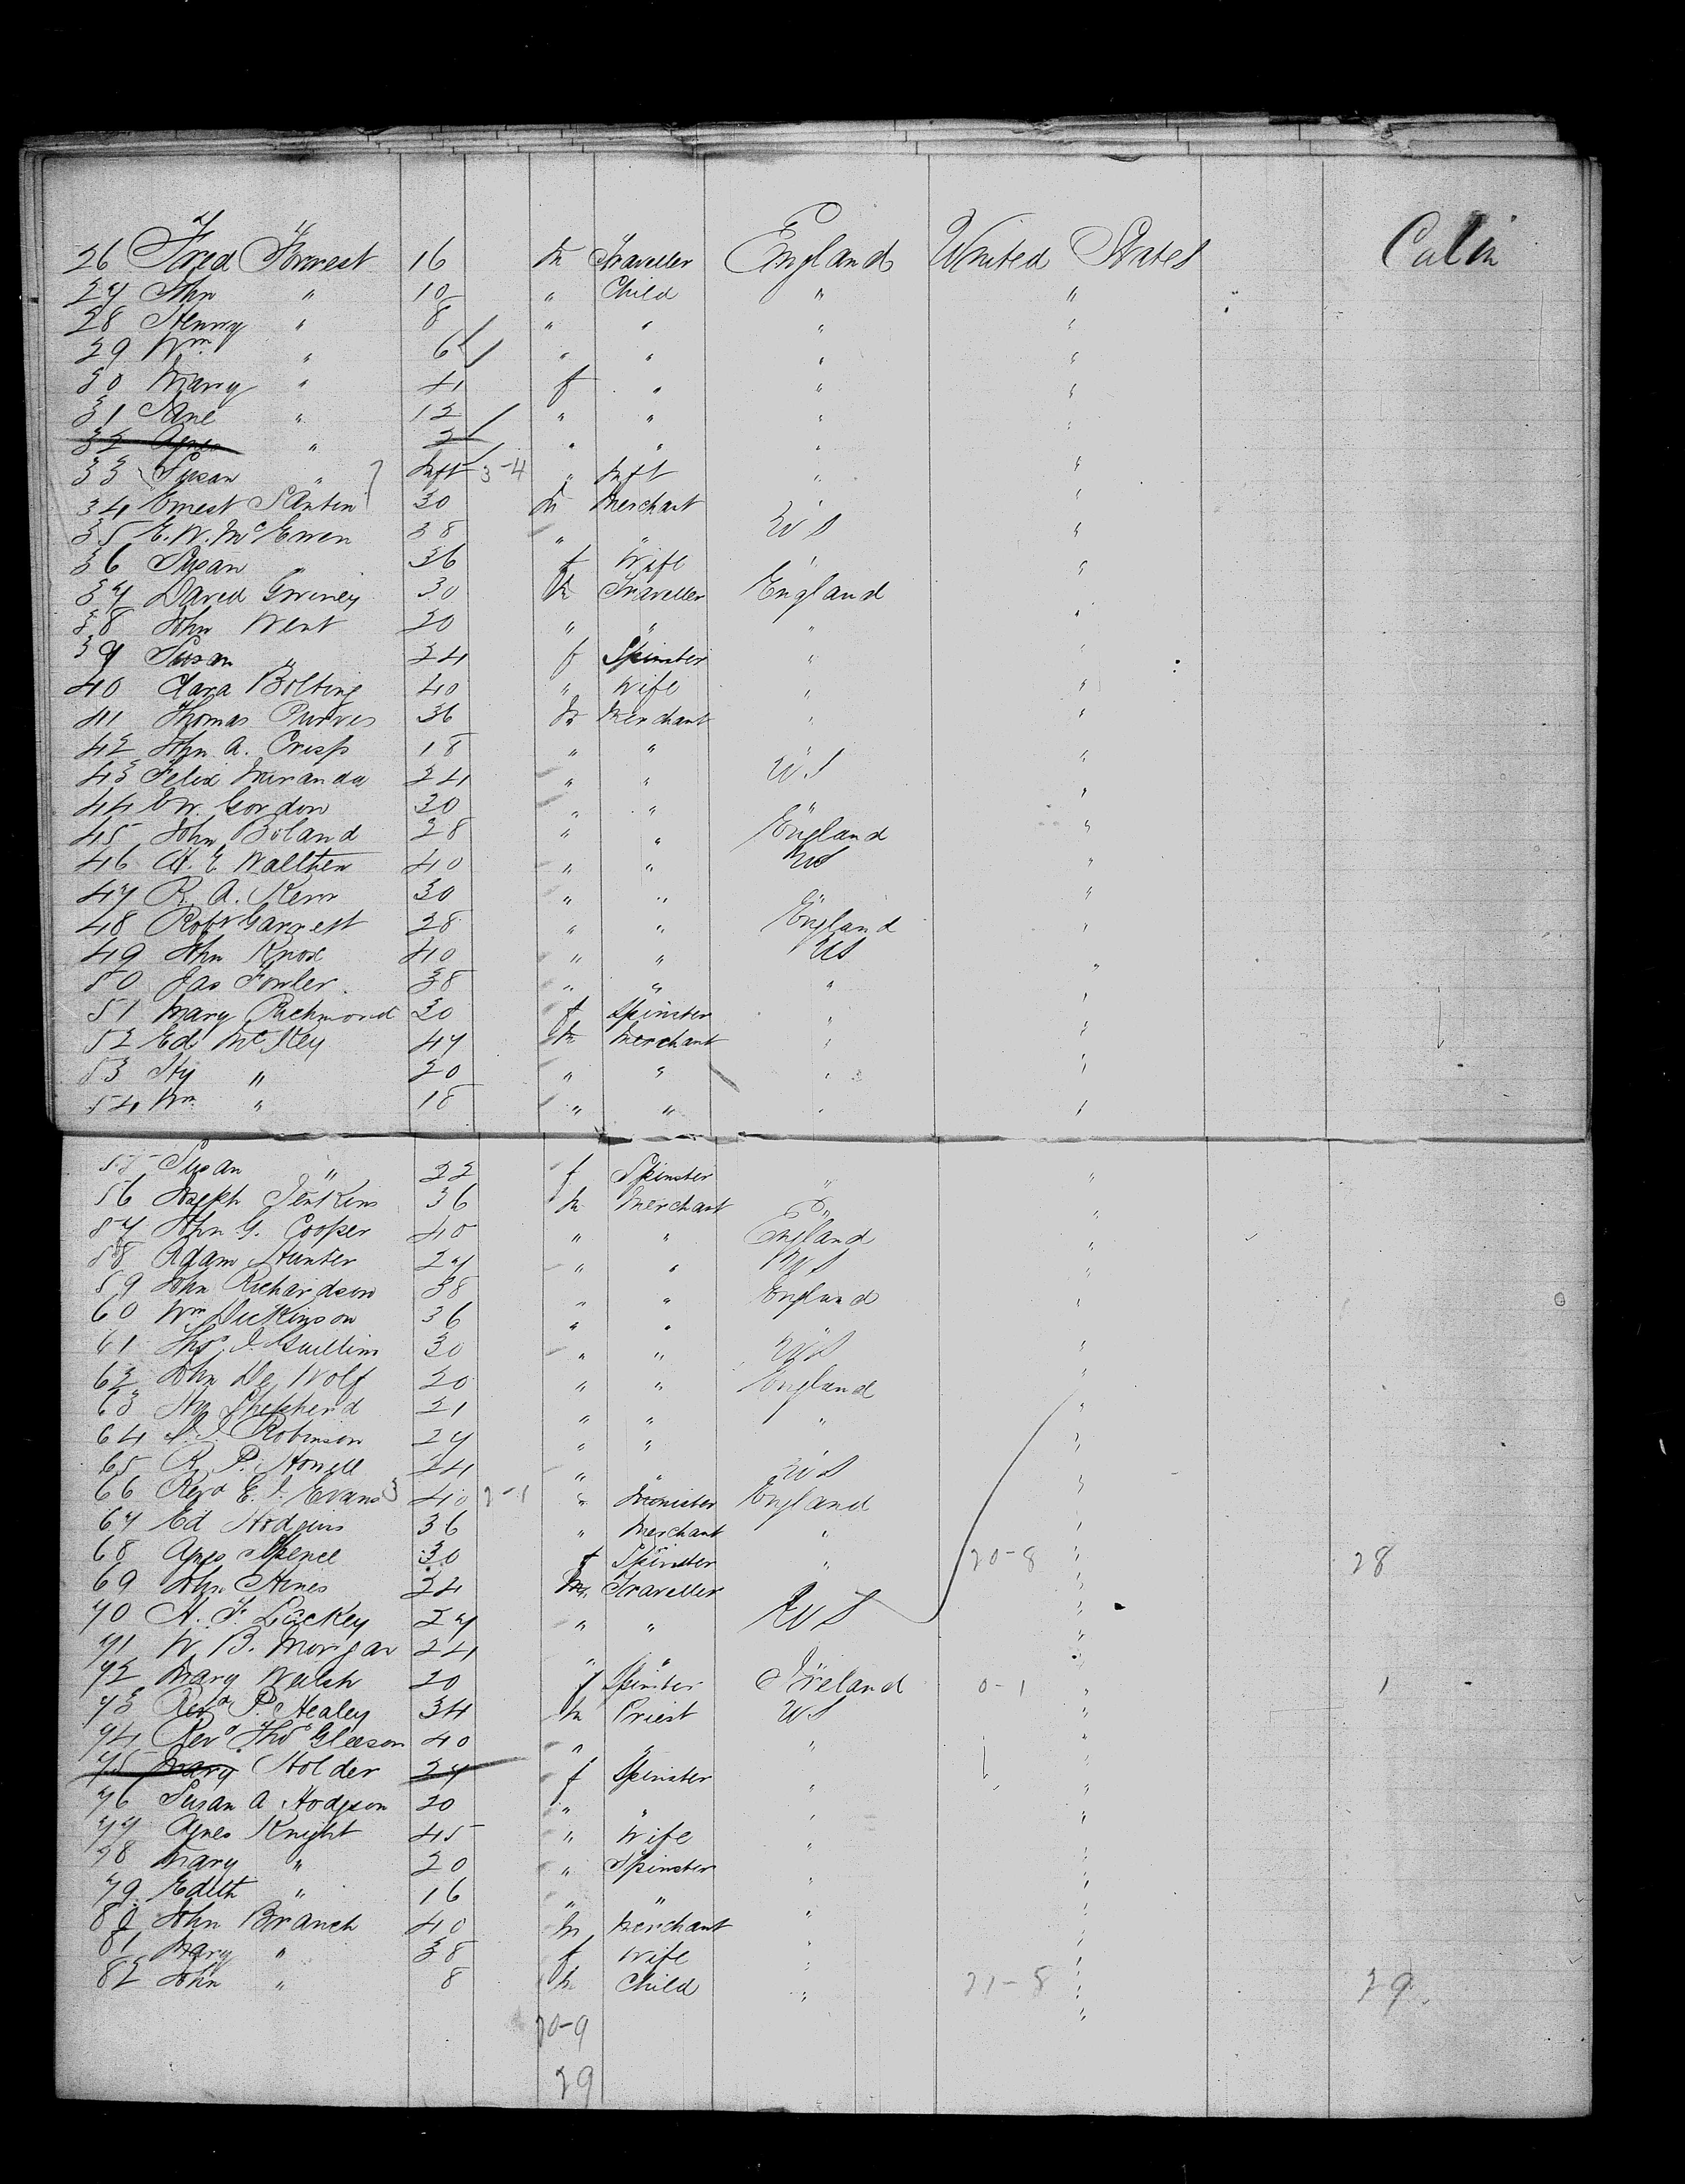 26 Fred Forrest 16 m Traveller England United States Cabin
27 John " 10 " Child " "
28 Henry " 8 " " " "
29 Wm " 6 " " " "
30 Mary " 4 f " " "
31 Jane " 12 " " " "
32 Agnes " 2 " " "
33 Susan " Inft 3-4 " Inft " "
34 Ernest Santin 30 m Merchant " "
35 E. W. McEwen 38 " " U S "
36 Susan " 36 f Wife " "
37 David 30 m Traveller England
38 John Went 20 " " " "
39 Susan " 24 f Spinster " "
40 Clara Bolting 40 " Wife " "
41 Thomas Purves 36 m Merchant " "
42 John A. Crisp 18 " " " "
43 Felix Miranda 24 " " U S "
44 Gordon 30 " " " "
45 John Boland 28 " " England "
46 Walther 40 " " U S "
47 R. A. Kerr 30 " " " "
48 Robt 28 " " England "
49 John Knox 40 " " U S "
50 Jas Fowler 38 " " " "
51 Mary Richmond 30 f Spinster " "
52 Ed McKey 47 m Merchant " "
53 Hy " 20 " " " "
54 Wm " 18 " " " "
55 Susan " 22 f Spinster " "
56 Joseph Jenkins 36 m Merchant " "
57 John G. Cooper 40 " " England "
58 Adam Hunter 27 " " U S "
59 John Richardson 38 " " England "
60 Wm Dickinson 36 " " " "
61 Thos J 30 " " U S "
62 John De Wolf 20 " " England "
63 Shepherd 21 " " " "
64 Robinson 27 " " " "
65 R. P. Howell 24 " " U S "
66 Revd E. J. Evans 40 2-1 " Minister England "
67 Ed Hodgins 36 " Merchant " "
68 Agnes Spence 30 f Spinster " 20-8 " 28
69 John Hines 24 m Traveller "
70 H. F. Lackey 27 " " U S "
71 W. B. Morgan 24 " " " "
72 Mary Walsh 20 f Spinster Ireland 0-1 " 1
73 Revd P. Healey 34 m Priest U S "
74 Revd Thos Gleeson 40 " " " "
75 Mary Holder 27 f Spinster " "
76 Susan A Hodgson 20 " " " "
77 Agnes Knight 45 " Wife " "
78 Mary " 20 " Spinster " "
79 Edith " 16 " " " "
80 John Branch 40 m Merchant " "
81 Mary " 38 f Wife " "
82 John " 8 m Child " 21-8 " 29
20-9
29